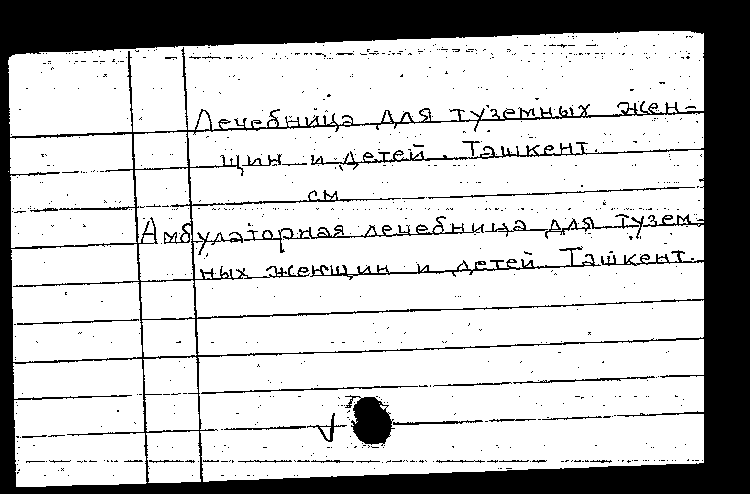 Лечебница для туземных жен-
щин и детей. Ташкент.
см.
Амбулаторная лечебница для тузем-
ных женщин и детей Ташкент.